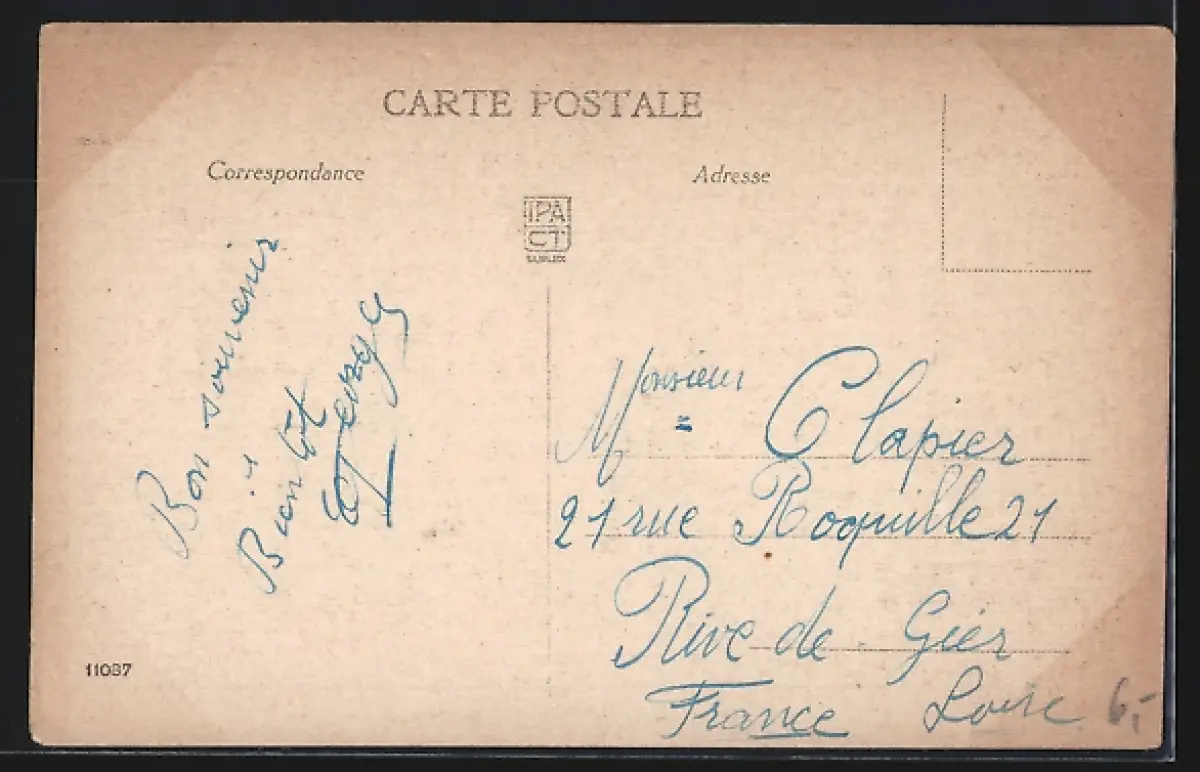 CARTE POSTALE
Correspondance
Adresse
IPA
CT
Bon souvenir
à
Bientôt
George
Monsieur
Mr = Clapier
21 rue Roquille 21
Rive de Gier
France Loire
11037
6,-